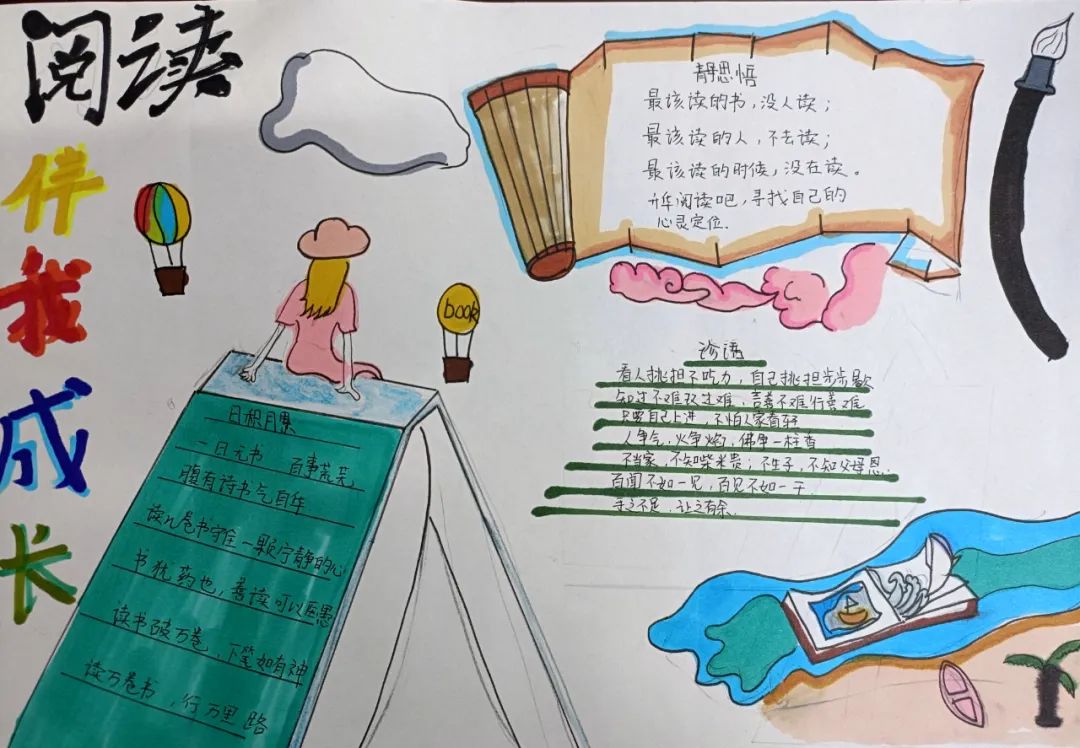 阅读
伴我成长
book
静思悟
最该读的书,没人读;
最该读的人,不去读;
最该读的时候,没在读。
阅读吧,寻找自己的
心灵定位.
谚语
看人挑担不吃力,自己挑担步步
知过不难改过难,言善不难行善难
只要自己上进,不怕人家看轻
人争气,火争焰,佛争一柱香
不当家,不知柴米贵;不生子,不知父母恩.
百闻不如一见,百见不如一干
手之不足,让之有余.
日积月
一日无书 百事荒芜
腹有诗书气自华
读几卷书守住一颗宁静的心
书犹药也,善读可以医愚
读书破万卷,下笔如有神
读万卷书,行万里路